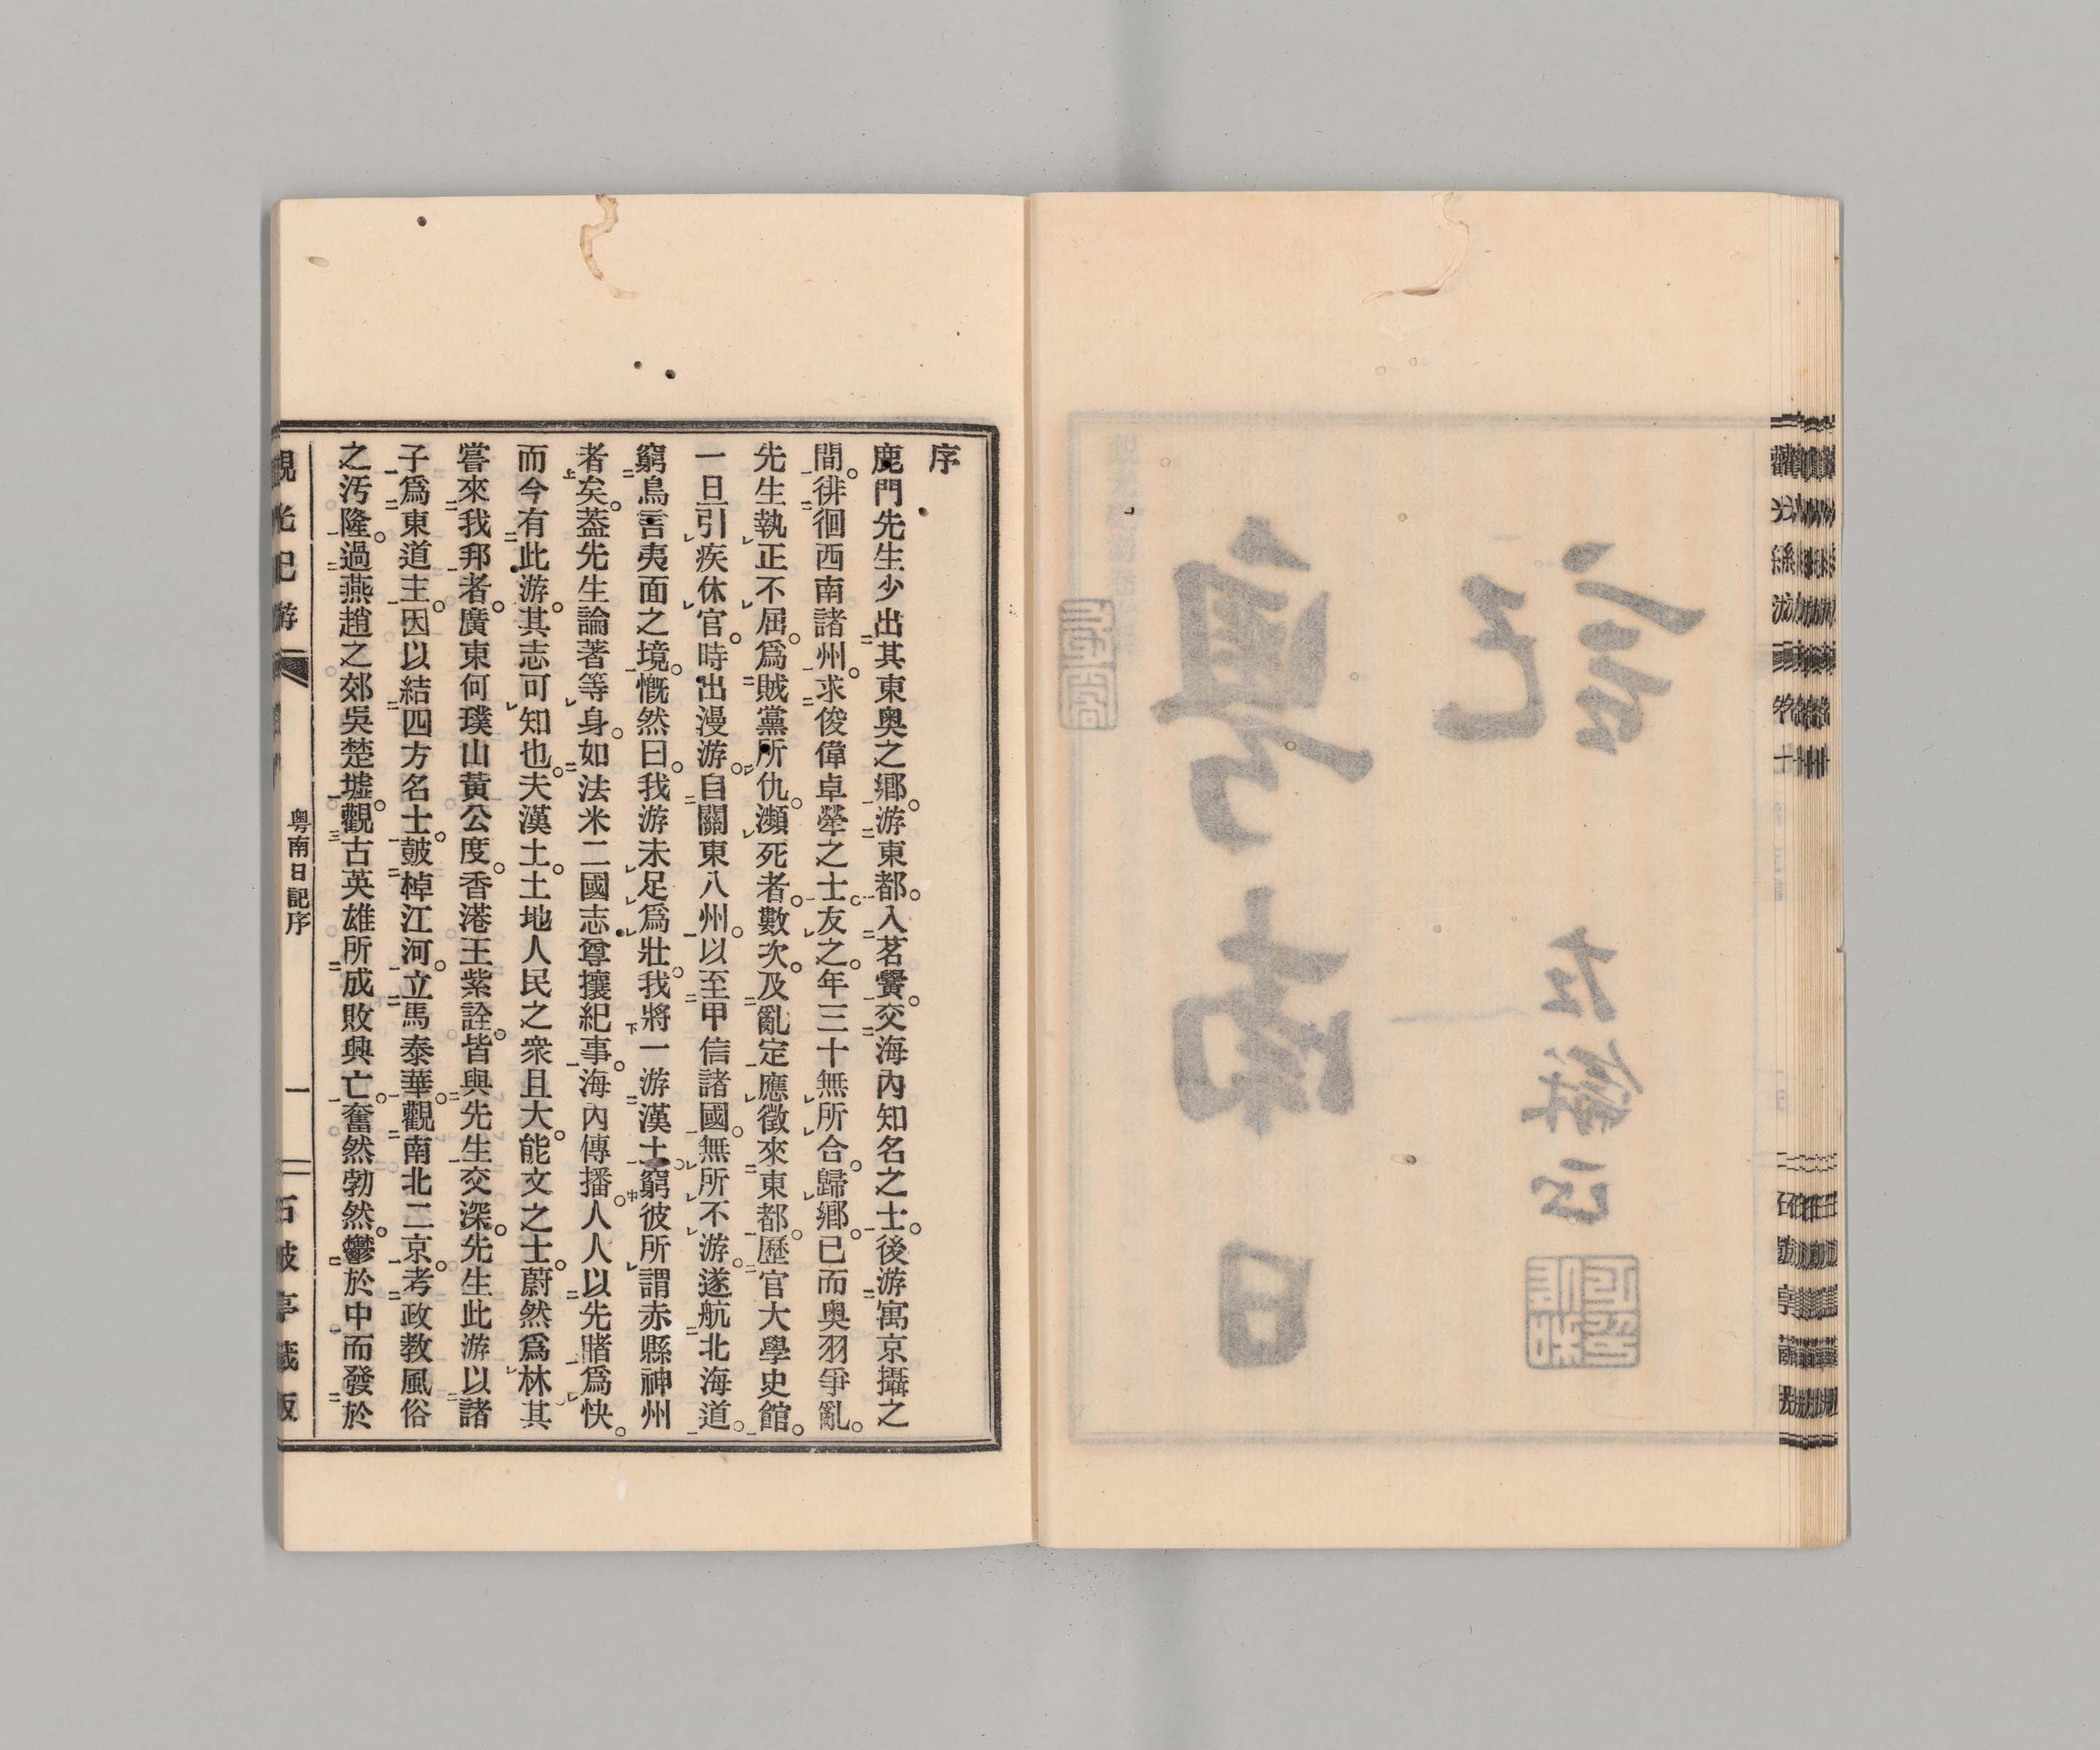 粤南日
記
序
鹿門先生少出其東奥之鄕。游東都。入茗黌。交海內知名之士。後游寓京攝之
間。徘徊西南諸州。求俊偉卓犖之士。友之。年三十無所合。歸鄕。已而奥羽爭亂。
先生執正不屈。爲賊黨所仇。瀕死者。數次。及亂定應徵來東都。歷官大學史館。
一旦引疾休官。時出漫游。自關東八州。以至甲信諸國。無所不游。遂航北海道。
窮鳥言夷面之境。慨然曰。我游未足爲壯。我將一游漢土。窮彼所謂赤縣神州
者矣。葢先生論著等身。如法米二國志尊攘紀事。海內傳播。人人以先賭爲快。
而今有此游。其志可知也。夫漢土。土地人民之衆且大。能文之士。蔚然爲林其
嘗來我邦者。廣東何璞山黃公度。香港王紫詮。皆與先生交深。先生此游以諸
子爲東道主。因以結四方名士。皷棹江河。立馬泰華。觀南北二京。考政教風俗
之汚隆。過燕趙之郊吳楚墟。觀古英雄所成敗興亡。奮然勃然。鬱於中而發於
觀光紀游
粤南日記序
一
石皷亭藏版